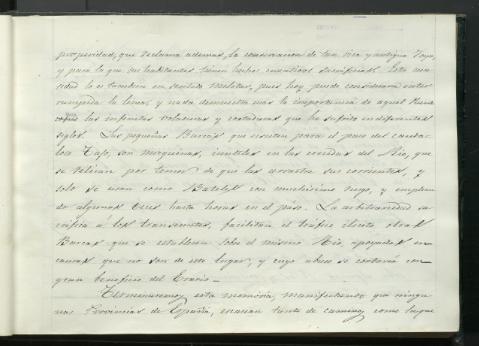 prosperidad, que reclama ademas, la conservacion de tan rica y antigua Joya,
y para lo que sus habitantes tienen hechos cuantiosos sacrificios. Esta nece
sidad lo es tambien en sentido militar, pues hoy puede considerarse inter
rumpida la linea, y nada demuestra más la importancia de aquel Puen
que las infinitas voladuras y cortaduras que ha sufrido en diferentes
siglos. Las pequeñas Barcas que existen para el paso del cauda
loso Tajo, son mezquinas, inutiles en las crecidas del Rio, que
se retiran por temor de que las arrastre sus corrientes, y
solo se usan como Bateles con muchisimo riesgo, y emplean
do algunas veces hasta horas en el paso. La arbitrariedad sa
crifica á los transeuntes, facilitan el tráfico ilicito otras
Barcas que se establecen sobre el mismo Rio, apoyadas en
causas que no son de este lugar, y cuyo abuso se cortaria con
gran beneficio del Erario.
Terminaremos esta memoria, manifestando que ningu
nas Provincias de España, escasean tanto de caminos como las que